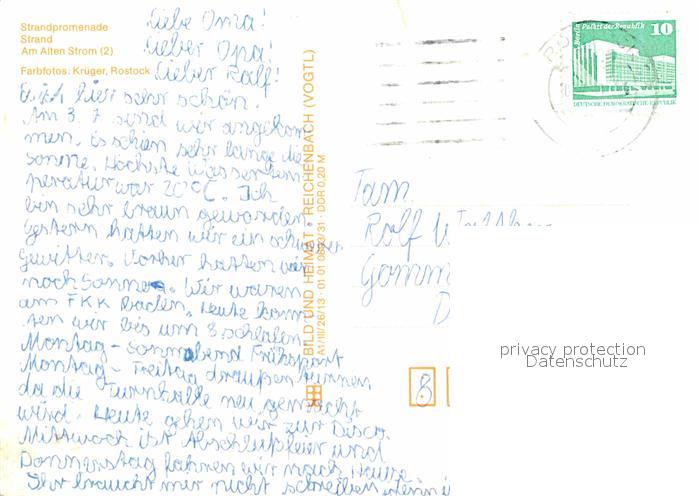 Strandpromenade
Strand
Am Alten Strom (2)
Farbfotos: Krüger, Rostock
Liebe Oma!
Lieber Opa!
Lieber Ralf!
Es ist hier sehr schön.
Am 3. 7. sind wir angekom
men. Es schien sehr lange die
Sonne. Höchste Wassertem-
peratur war 20°C. Ich
bin sehr braun geworden.
Gestern hatten wir ein schweres
Gewitter. Vorher hatten wir
noch Sonne. Wir waren
am FKK baden. Heute konn
ten wir bis um 8 schlafen
Montag - Sonnabend Frühsport
Montag - Freitag draußen turnen
da die Turnhalle neu gemacht
wird. Heute gehen wir zur Disco.
Mittwoch ist Abschlußfeier und
Donnerstag fahren wir nach Hause.
Ihr braucht mir nicht schreiben, denn
BILD UND HEIMAT REICHENBACH (VOGTL)
A1/III/26/13 01 01 08 DDR 0,20 M
Berlin Palast der Republik
10
DEUTSCHE DEMOKRATISCHE REPUBLIK
Fam.
Rolf
Gomm
8
privacy protection
Datenschutz